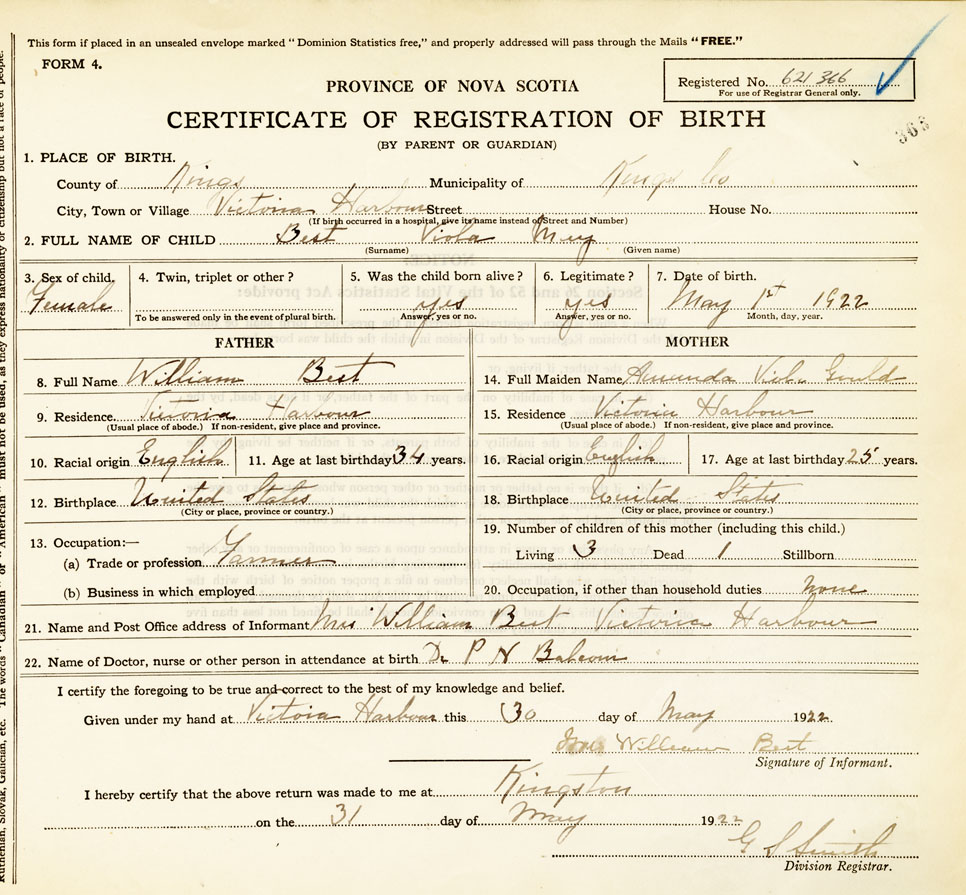 This form if placed in an unsealed envelope marked "Dominion Statistics free," and properly addressed will pass through the Mails "FREE."
FORM 4.
Registered No. 621 366
For use of Registrar General only.
PROVINCE OF NOVA SCOTIA
366
CERTIFICATE OF REGISTRATION OF BIRTH
(BY PARENT OR GUARDIAN)
1. PLACE OF BIRTH.
County of Kings Municipality of Kings Co
City, Town or Village Victoria Harbour Street House No.
(If birth occurred in a hospital, give its name instead of Street and Number)
2. FULL NAME OF CHILD Best Viola May
(Surname) (Given name)
3. Sex of child. 4. Twin, triplet or other? 5. Was the child born alive? 6. Legitimate? 7. Date of birth.
Female yes yes May 1st 1922
To be answered only in the event of plural birth. Answer, yes or no. Answer, yes or no. Month, day, year.
FATHER MOTHER
8. Full Name William Best 14. Full Maiden Name Amanda Viola Gould
9. Residence Victoria Harbour 15. Residence Victoria Harbour
(Usual place of abode.) If non-resident, give place and province. (Usual place of abode.) If non-resident, give place and province.
10. Racial origin English 11. Age at last birthday 34 years. 16. Racial origin English 17. Age at last birthday 25 years.
12. Birthplace United States 18. Birthplace United States
(City or place, province or country.) (City or place, province or country.)
13. Occupation:— 19. Number of children of this mother (including this child.)
(a) Trade or profession Farmer Living 3 Dead 1 Stillborn
(b) Business in which employed 20. Occupation, if other than household duties none
21. Name and Post Office address of Informant Mrs William Best Victoria Harbour
22. Name of Doctor, nurse or other person in attendance at birth Dr P N Balcom
I certify the foregoing to be true and correct to the best of my knowledge and belief.
Given under my hand at Victoria Harbour this 30 day of May 1922.
Mrs William Best
Signature of Informant.
I hereby certify that the above return was made to me at Kingston
on the 31 day of May 1922
G S Smith
Division Registrar.
must not be used, as they express nationality or citizenship but not a race of people.
Ruthenian, Slovak, Galician, etc. The words "Canadian" or "American"